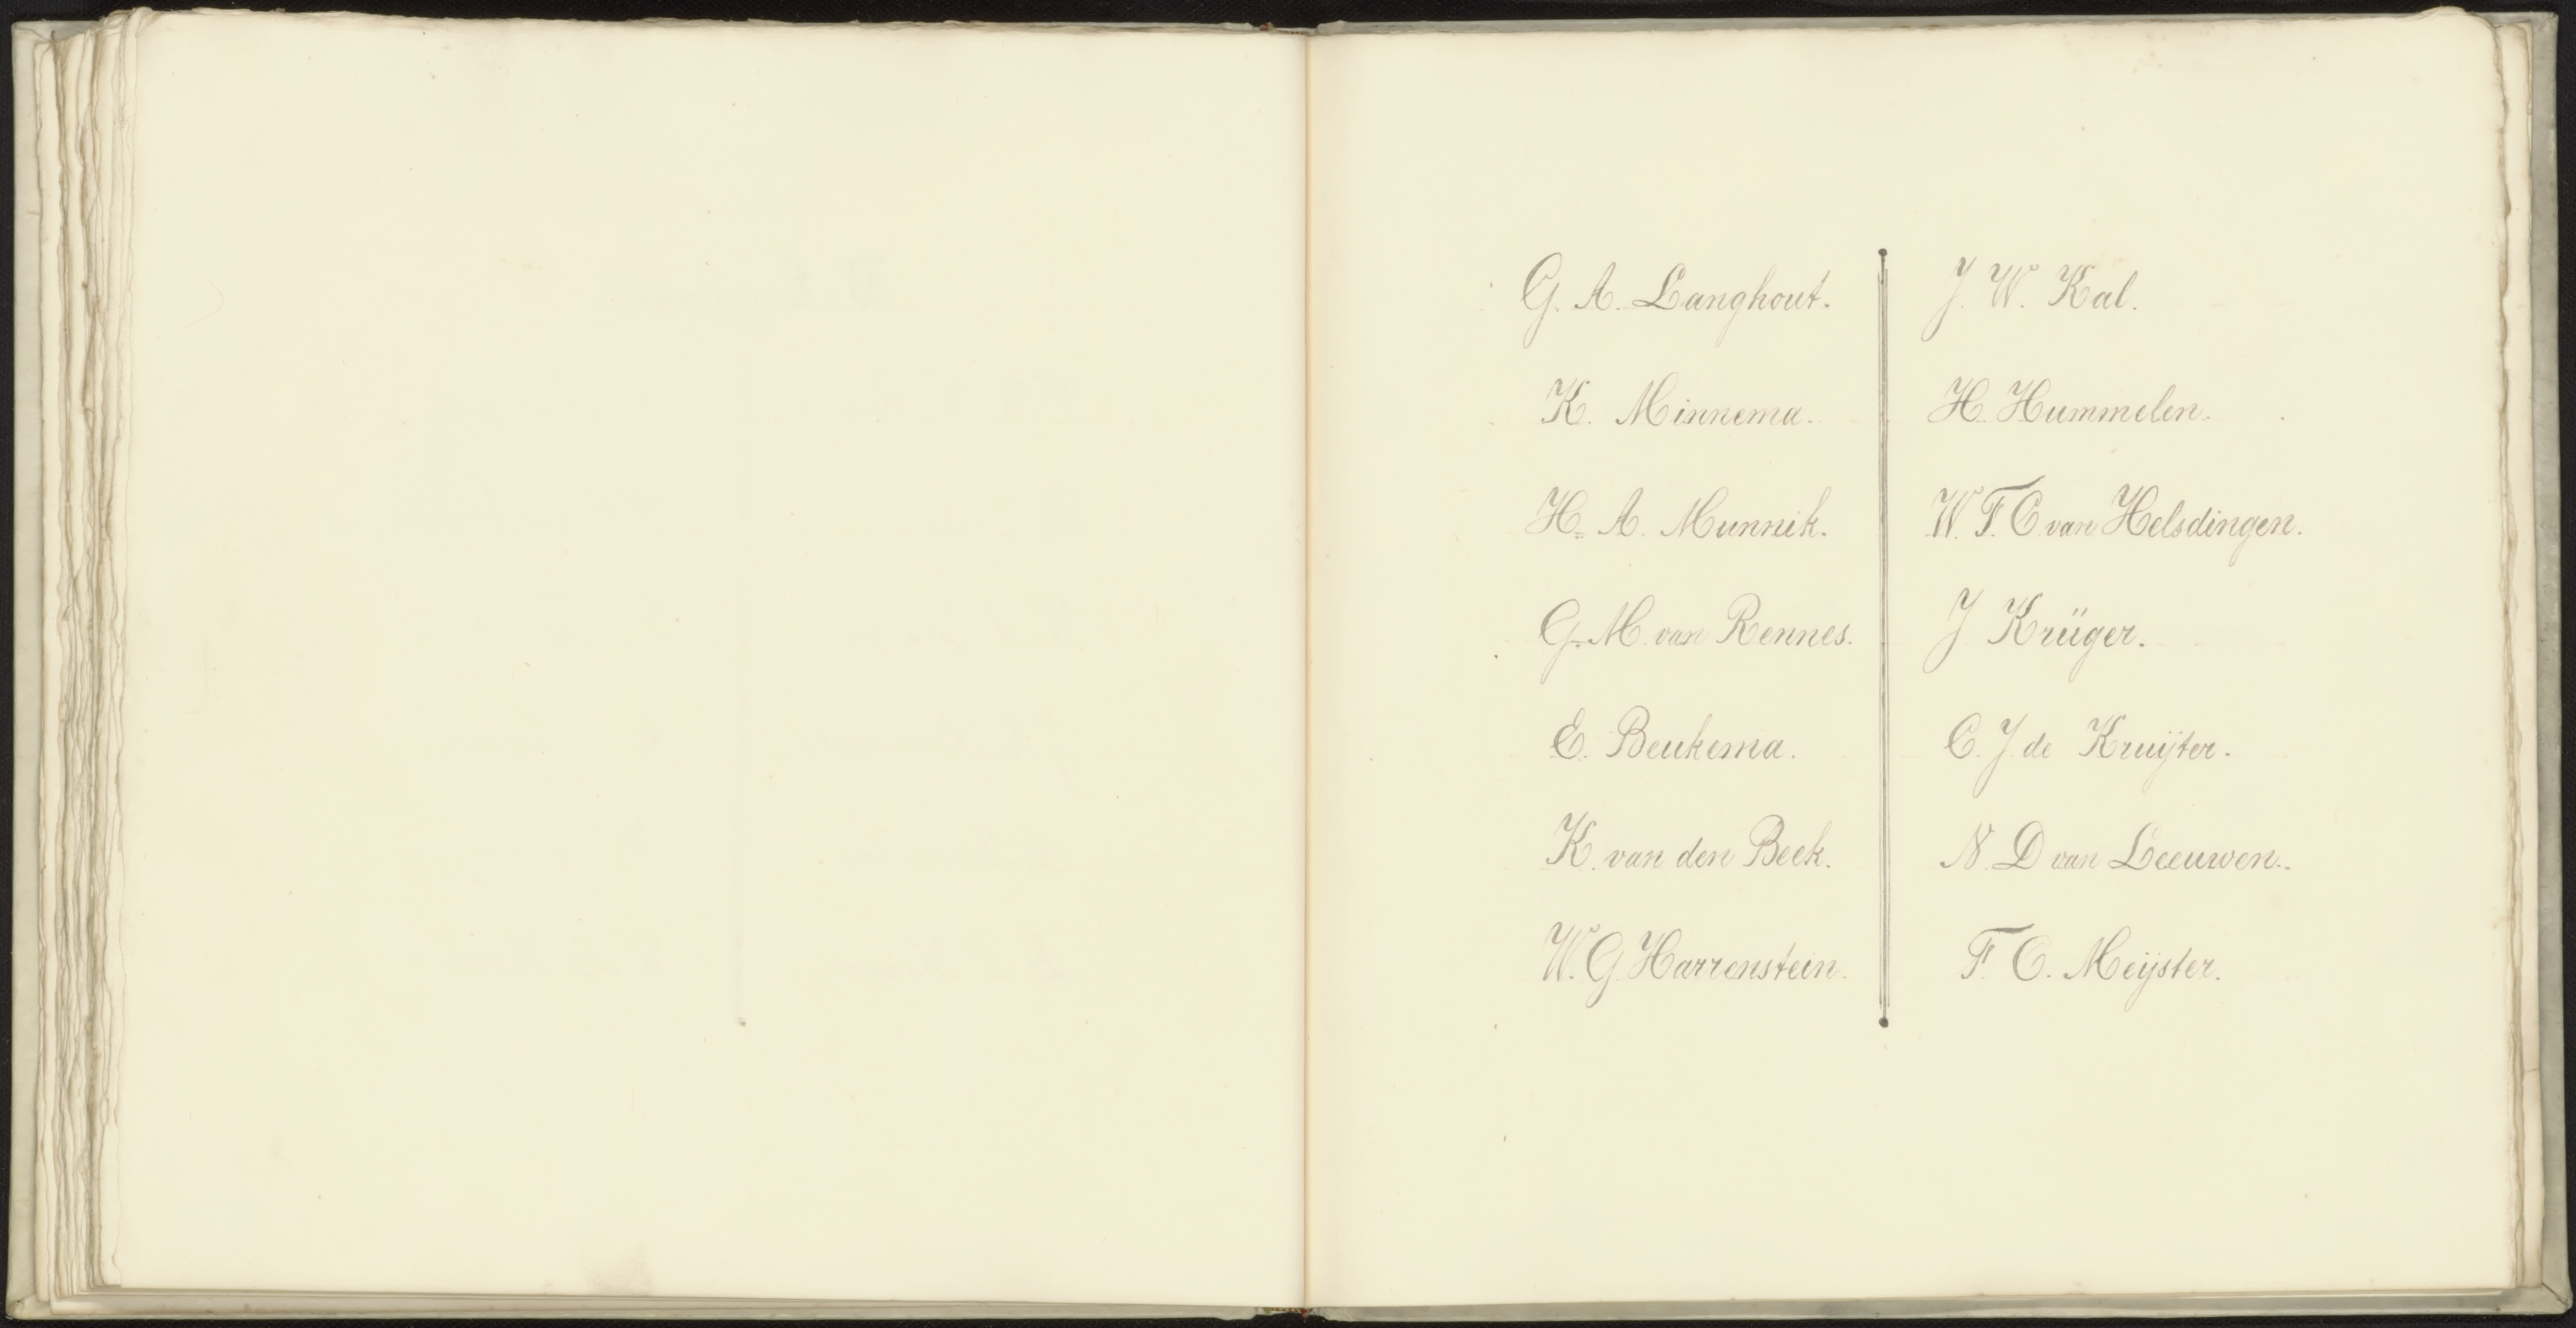 G. A. Langhout.
K. Minnema.
H. A. Munnik.
G. M. van Rennes.
E. Beukema.
K. van den Beek.
W. G. Harrenstein.
J. W. Kal.
H. Hummelen.
W. F. C. van Helsdingen.
J. Krüger.
C. J. de Kruijter.
N. D van Leeuwen.
F. C. Meijster.